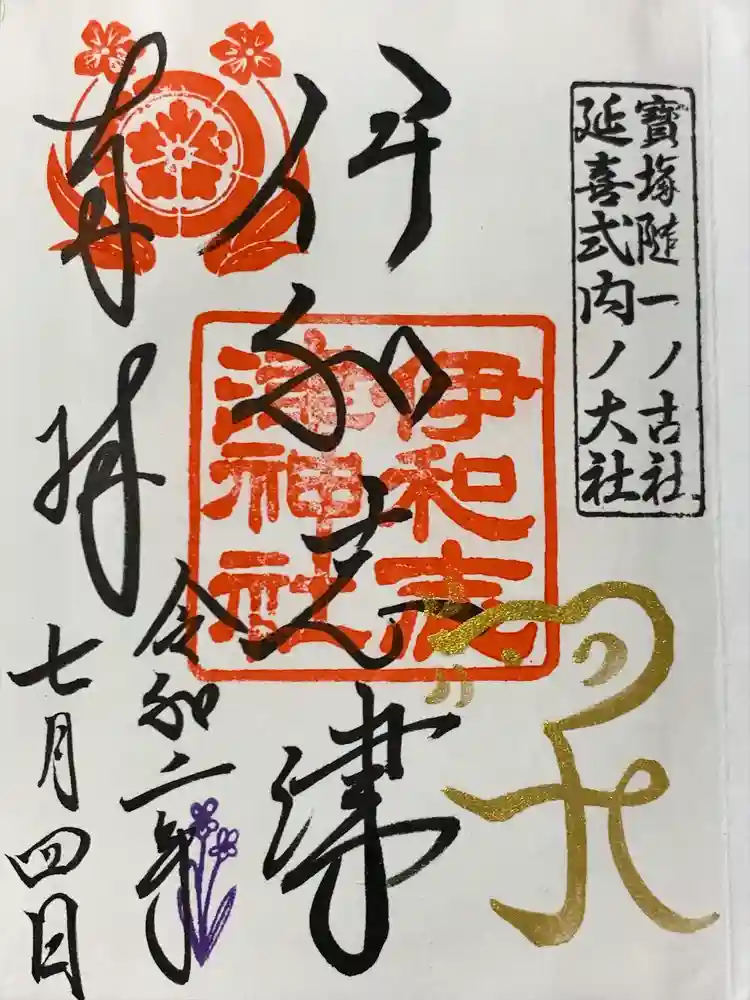 寶塚随一ノ古社
延喜式内ノ大社
伊和志津
伊和志
津神社
有拝
令和二年
七月四日